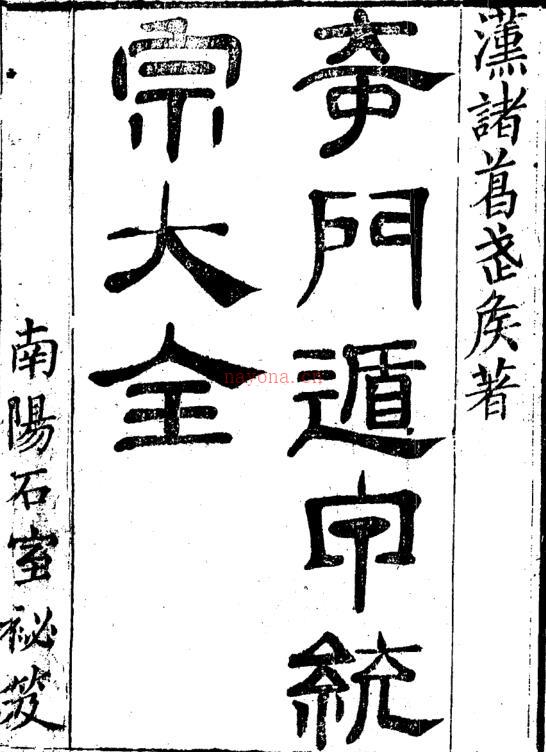 漢諸葛武矦著
奇門遁甲統
宗大全
南陽石室祕笈
nayona.cn